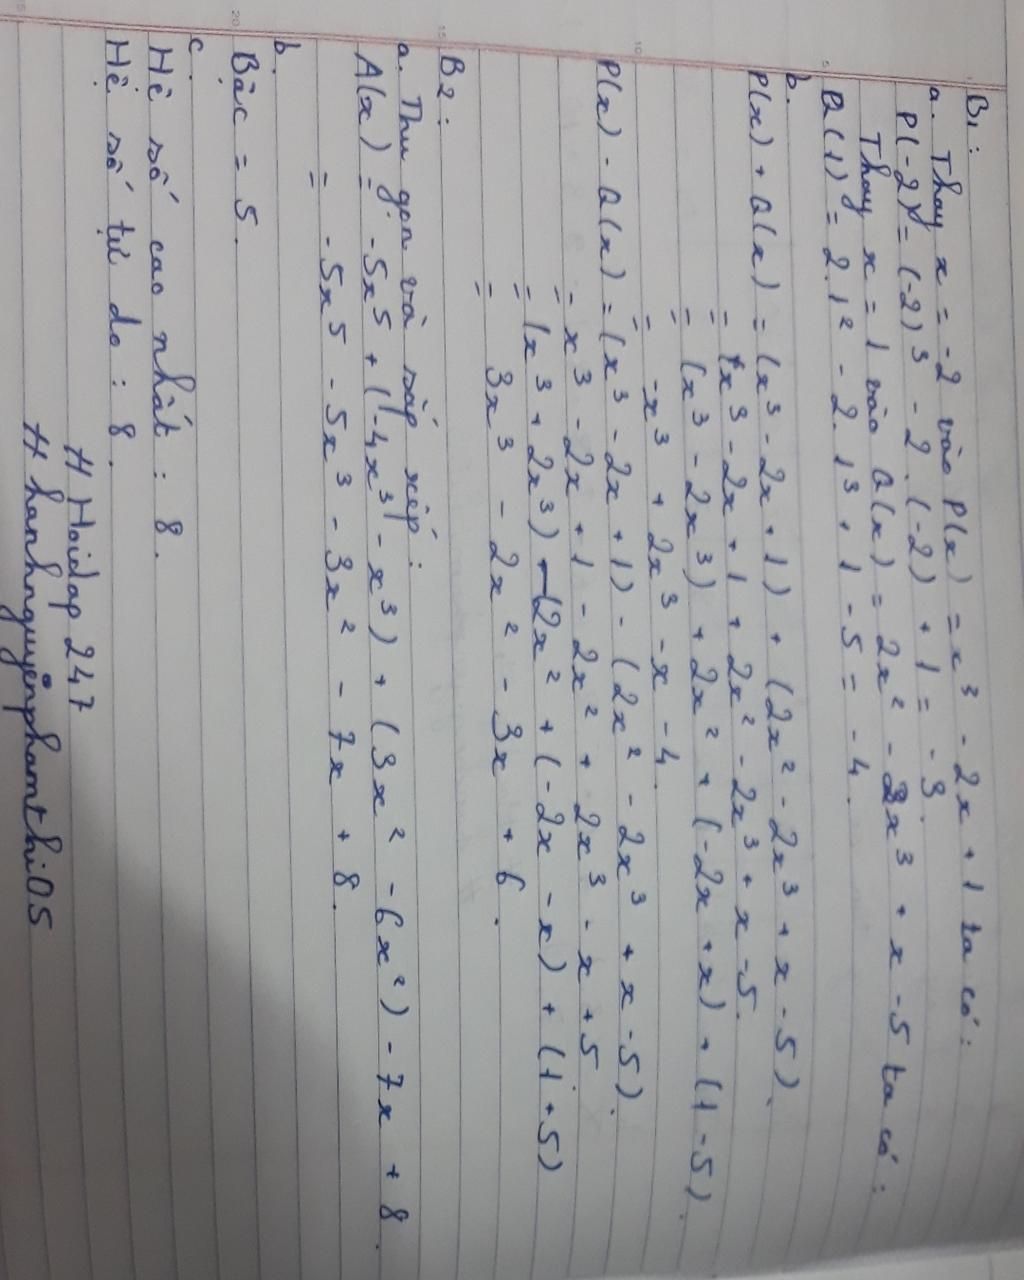 B1:
a. Thay x = -2 vào P(x) = x³ - 2x + 1 ta có:
P(-2) = (-2)³ - 2.(-2) + 1 = -3.
Thay x = 1 vào Q(x) = 2x² - 2x³ + x - 5 ta có:
Q(1) = 2.1² - 2.1³ + 1 - 5 = -4.
b.
P(x) + Q(x) = (x³ - 2x + 1) + (2x² - 2x³ + x - 5).
= x³ - 2x + 1 + 2x² - 2x³ + x - 5.
= (x³ - 2x³) + 2x² + (-2x + x) + (1 - 5).
= -x³ + 2x³ - x - 4.
P(x) - Q(x) = (x³ - 2x + 1) - (2x² - 2x³ + x - 5).
= x³ - 2x + 1 - 2x² + 2x³ - x + 5
= (x³ + 2x³) - 2x² + (-2x - x) + (1 + 5)
= 3x³ - 2x² - 3x + 6.
B2:
a. Thu gọn và sắp xếp:
A(x) = -5x⁵ + (-4x³ - x³) + (3x² - 6x²) - 7x + 8.
= -5x⁵ - 5x³ - 3x² - 7x + 8.
b.
Bậc = 5.
c.
Hệ số cao nhất: 8.
Hệ số tự do: 8.
# Hoidap 247
# hanhnguyênphamthi05